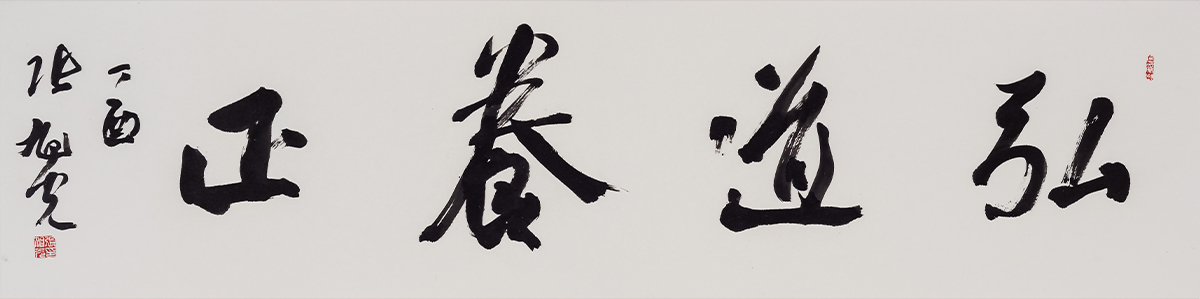 弘道養正
丁酉
张旭光